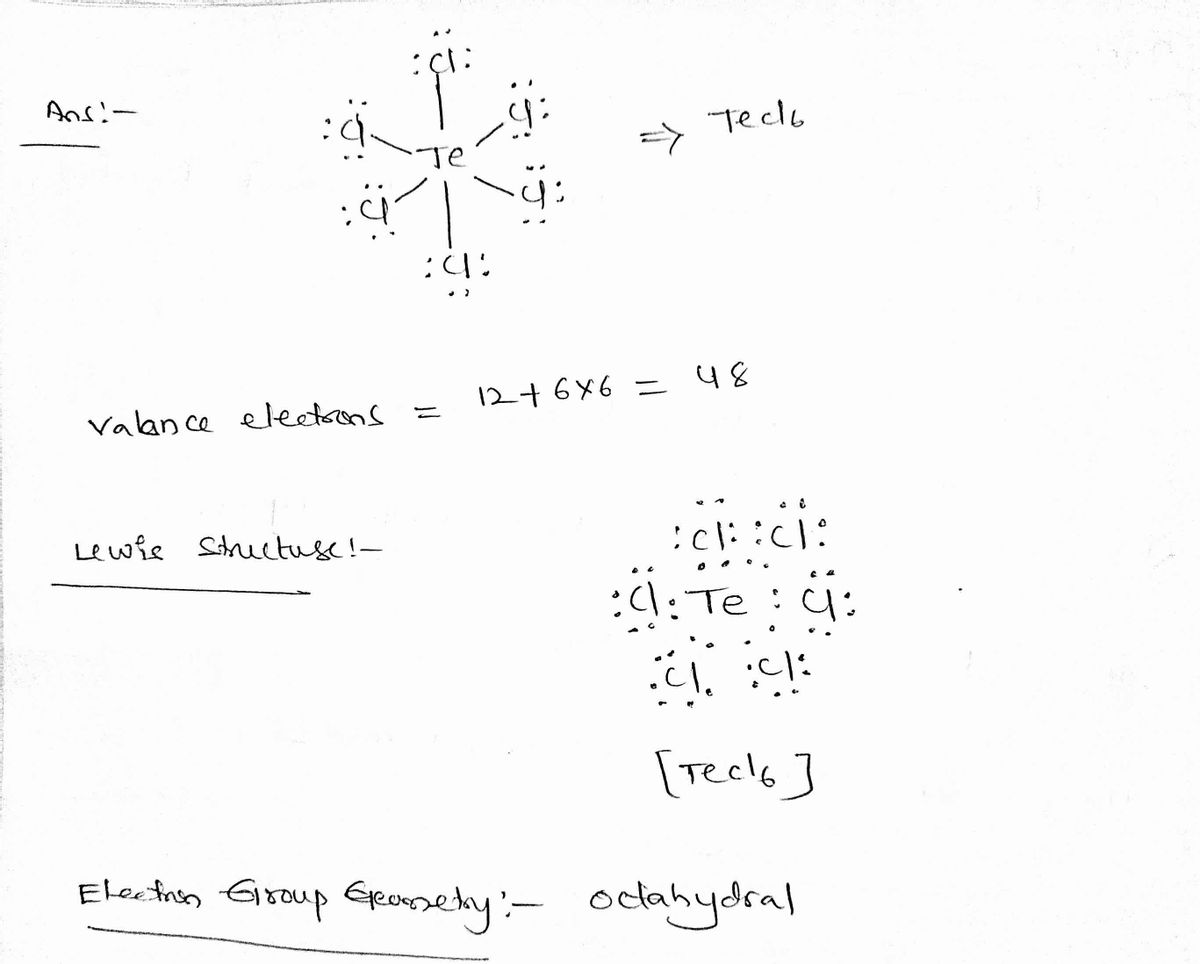 :Cl:
Ans:-
:Cl Cl:
Te
⇒ TeCl6
:Cl Cl:
:Cl:
valance electrons = 12 + 6×6 = 48
Lewis Structure:-
:Cl: :Cl:
:Cl: Te : Cl:
:Cl. :Cl:
[TeCl6]
Electron Group Geometry:- octahydral